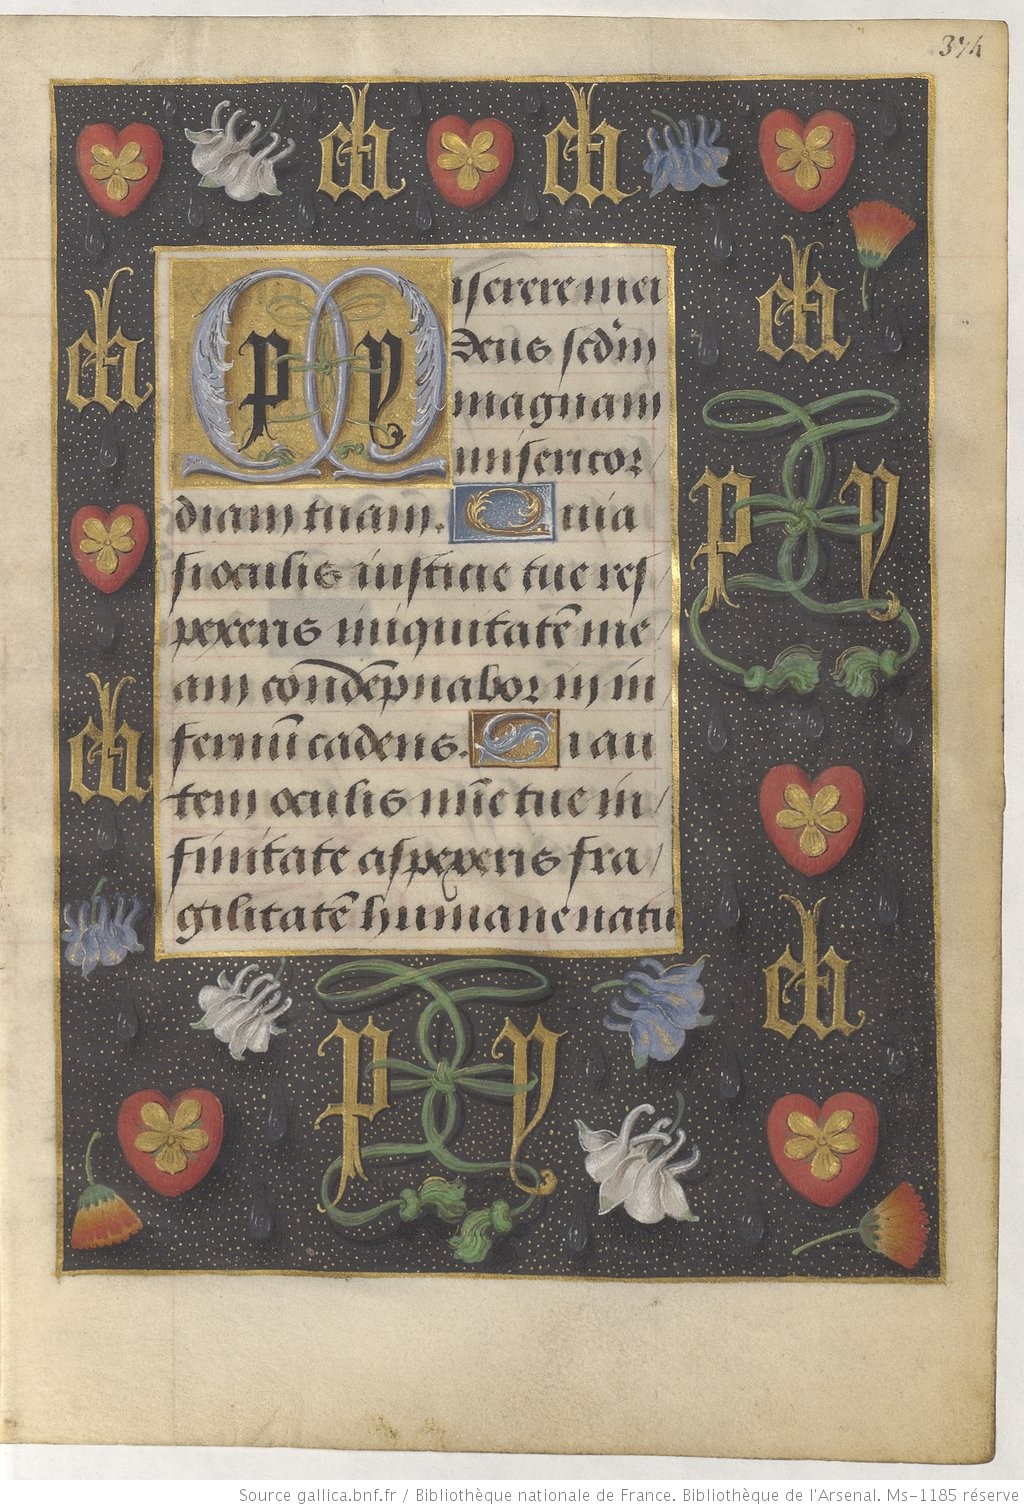 374
Miserere mei
deus scd'm
magnam
misericor/
diam tuam. Quia
si oculis iusticie tue res
pexeris iniquitatē me/
am condēpnabor in in
fernū cadens. Si au
tem oculis mīe tue in/
finitate aspexeris fra/
gilitatē humane natu
p y
p y
p y
Source gallica.bnf.fr / Bibliothèque nationale de France. Bibliothèque de l'Arsenal. Ms-1185 réserve